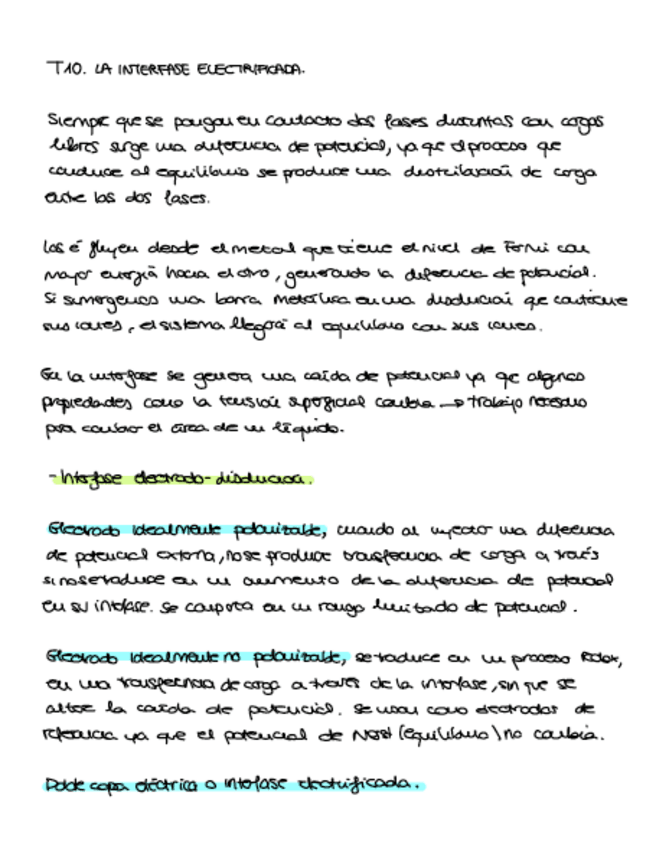 T10. LA INTERFASE ELECTRIFICADA.
Siempre que se pongan en contacto dos fases distintas con cargas
libres surge una diferencia de potencial, ya que el proceso que
conduce al equilibrio se produce una destribución de carga
entre las dos fases.
Los é fluyen desde el metal que tiene el nivel de Fermi con
mayor energía hacia el otro, generando la diferencia de potencial.
Si sumergimos una barra metálica en una disolución que contiene
sus iones, el sistema llegará al equilibrio con sus iones.
En la interfase se genera una caída de potencial ya que algunas
propiedades como la tensión superficial cambia → trabajo necesario
para cambiar el área de un líquido.
- Interfase electrodo-disolución.
Electrodo idealmente polarizable, cuando al inyectar una diferencia
de potencial externa, no se produce transferencia de carga a través
si no se traduce en un aumento de la diferencia de potencial
en su interfase. Se comporta en un rango limitado de potencial.
Electrodo idealmente no polarizable, se traduce en un proceso Redox,
en una transferencia de carga a través de la interfase, sin que se
altere la caída de potencial. Se usan como electrodos de
referencia ya que el potencial de Nernst (equilibrio) no cambia.
Doble capa eléctrica o interfase electrificada.